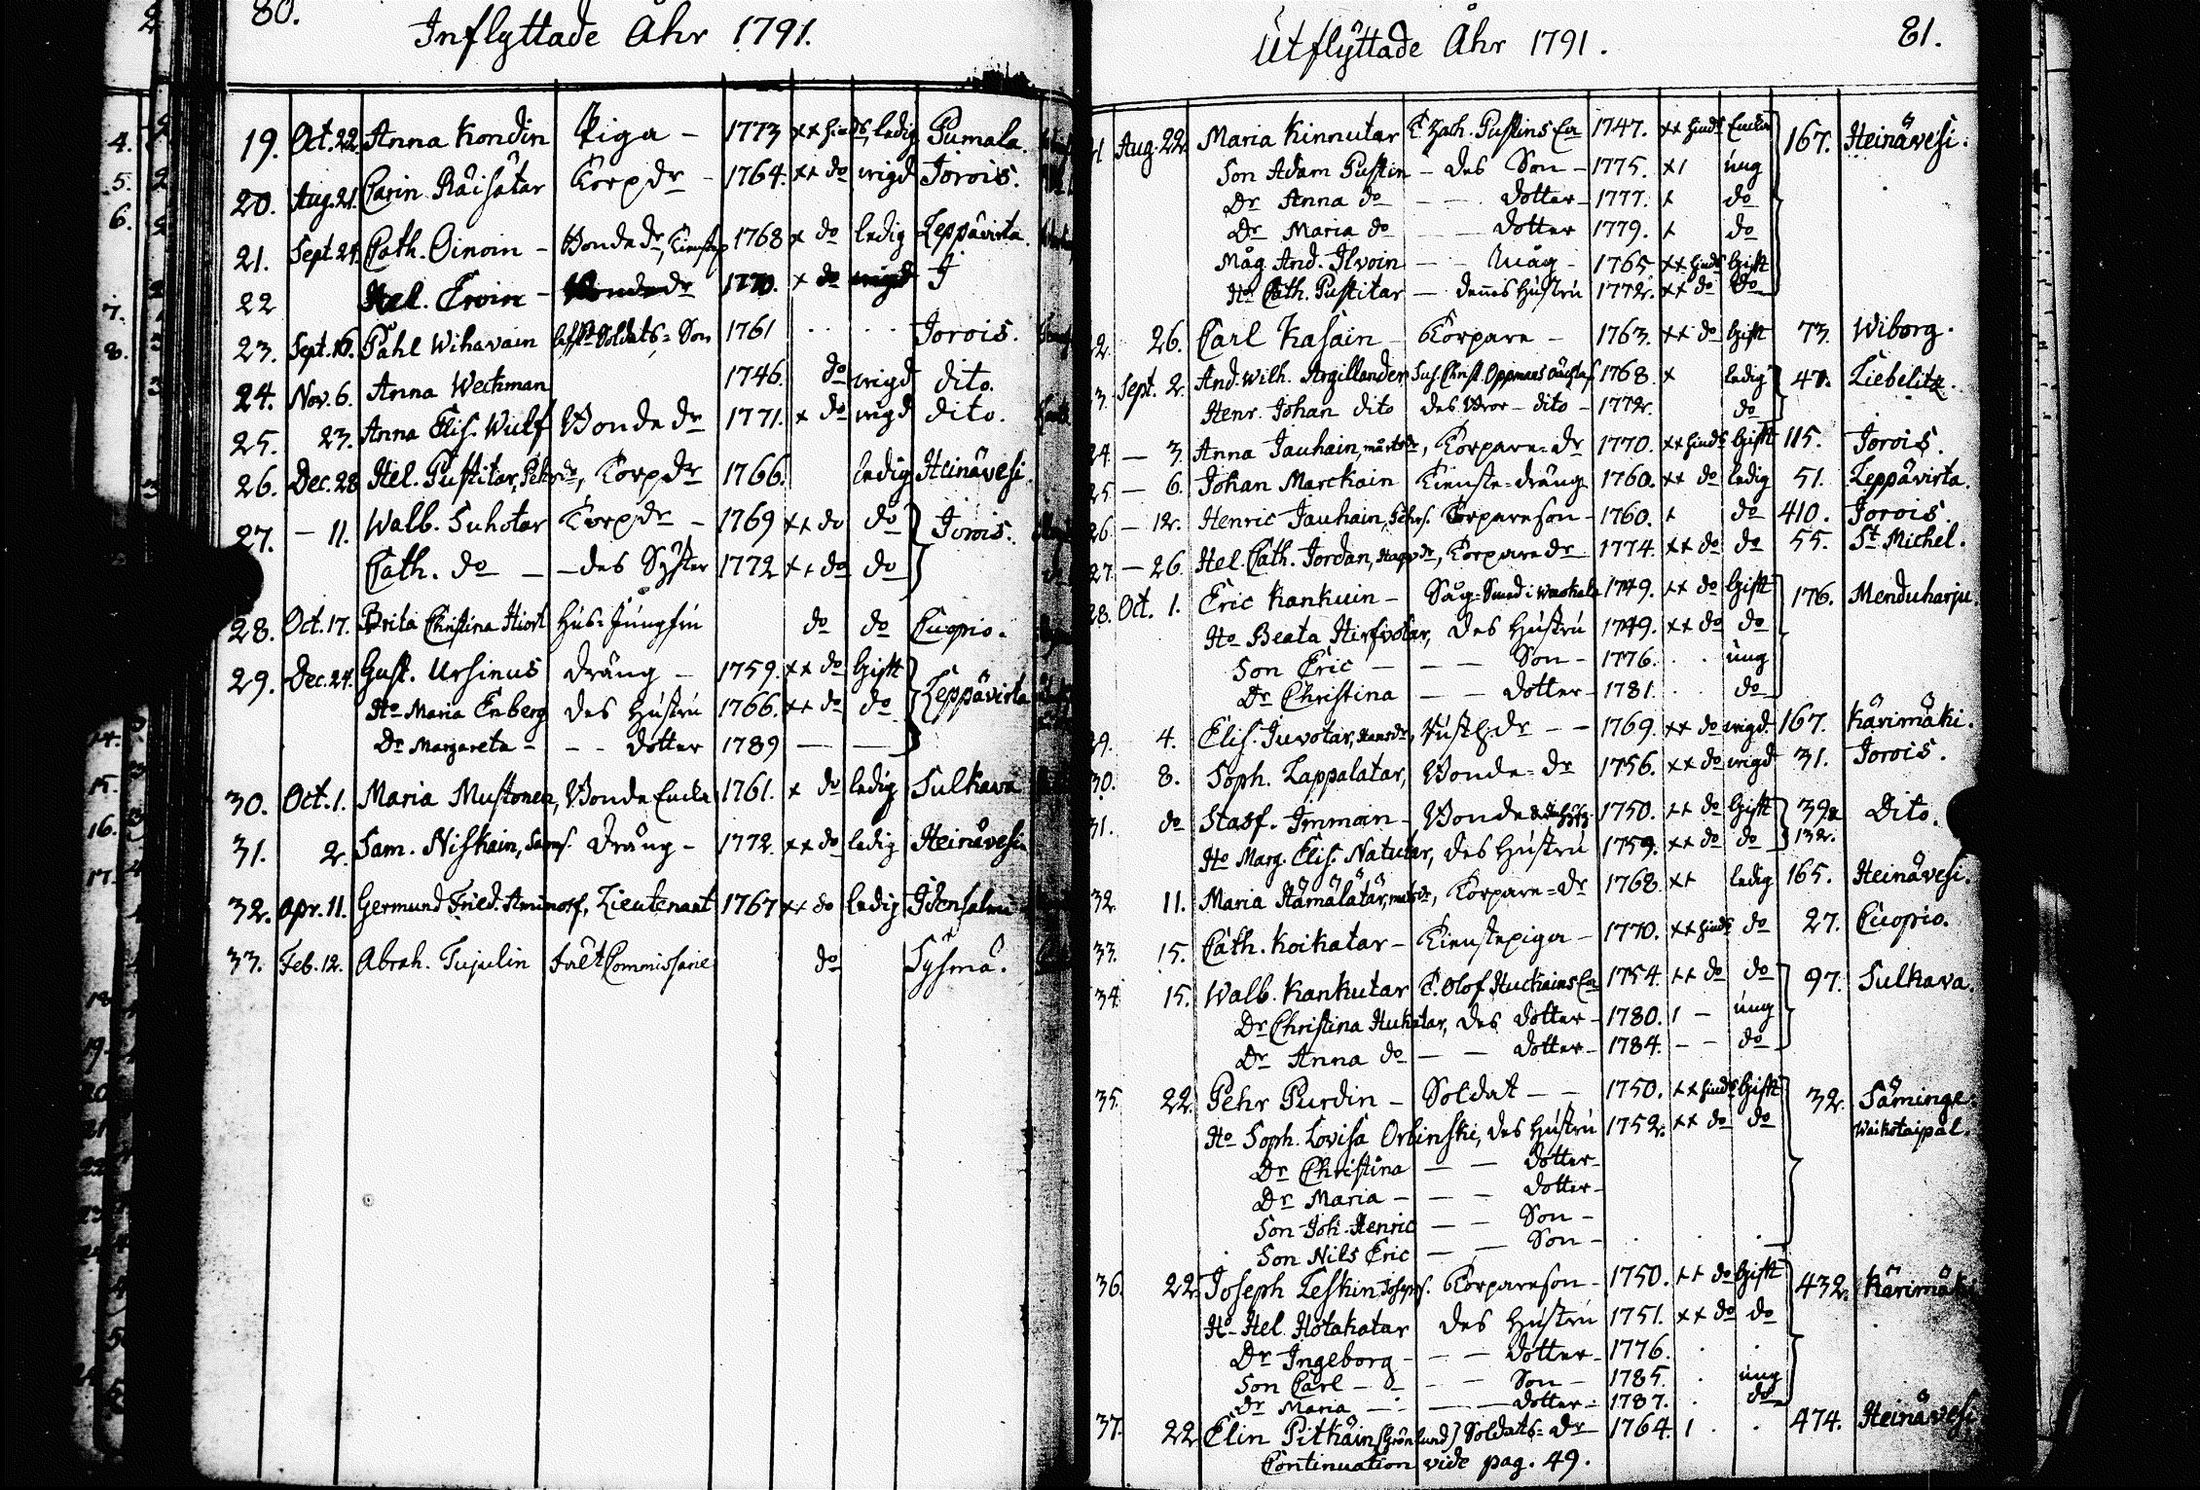 80.
Inflyttade Åhr 1791.
19. Oct. 22. Anna Kondin Piga - 1773 ++ hinds, ledig Pumala.
20. Aug. 21. Carin Räisätar Torpdr - 1764. ++ do wigd Jorois.
21. Sept. 24. Cath. Oinoin - Bonde dr, 1768 + do ledig Leppävirta.
22 Hel. Ervin - dr 1770. + do J
23. Sept. 16. Påhl Wihavain Soldats-Son 1761 Jorois.
24. Nov. 6. Anna Weckman 1746. do wigd dito.
25. 23. Anna Elis. Wulf Bonde dr 1771. + do wigd dito.
26. Dec. 28 Hel. Pustitar, Torpdr 1766. ledig Heinävesi.
27. - 11. Walb. Suhotar Torpdr - 1769 ++ do do Jorois.
Cath. do - - des Syster 1772 ++ do do
28. Oct. 17. Brita Christina Hiort Hus-Jungfru do do Cuopio.
29. Dec. 24. Gust. Ursinus dräng - 1759. ++ do Gift Leppävirta
Ho Maria Enberg des Hustru 1766. ++ do do
Dr Margareta - - - dotter 1789 - -
30. Oct. 1. Maria Mustonen, Bonde Encka 1761. + do ledig Sulkava
31. 2. Sam. Niskain, Sams. dräng - 1772. ++ do ledig Heinävesi.
32. Apr. 11. Germund Fried. Aminoff, Lieutenant 1767 ++ do ledig Idensalmi
33. Feb. 12. Abrah. Tujulin Commissarie do Sysmä.
Utflyttade Åhr 1791.
81.
Aug. 22. Maria Kinnutar T. Zach. Pustins Ea 1747. ++ hinds Encka 167. Heinävesi.
Son Adam Pustin - des Son - 1775. +1 ung
Dr Anna do - - dotter - 1777. + do
Dr Maria do - - dotter 1779. + do
Måg. And. Ilvoin - - Måg - 1765. ++ hinds Gift
Ho Cath. Pustitar - dennes Hustru 1772. ++ do do
22. 26. Carl Kasain - Torpare - 1763. ++ do Gift 73. Wiborg.
Sept. 2. And. Wilh. Argillander 1768. + ledig 47. Libelitz.
Henr. Johan dito des Bror - dito - 1772. do
24. - 3. Anna Jauhain, Torpare-Dr 1770. ++ hinds Gift 115. Jorois.
25 - 6. Johan Marckain Tienste-dräng 1760. ++ do ledig 51. Leppävirta.
26 - 12. Henric Jauhain, Torpareson - 1760. + do 410. Jorois.
27. - 26 Hel. Cath. Jordan, Torpare dr 1774. ++ do do 55. St Michel.
28. Oct. 1. Eric Kankuin - Såg-Smed i 1749. ++ do Gift 176. Menduharju.
Ho Beata Hirfvotar, des Hustru 1749. ++ do do
Son Eric - - - Son - 1776. ung
Dr Christina - - dotter - 1781. do
29. 4. Elis. Juvotar, Hansdr, dr - - 1769. ++ do wigd. 167. Kärimäki.
30. 8. Soph. Lappalatar, Bonde-dr 1756. ++ do wigd 31. Jorois.
31. do Staff. Immoin - Bonde 1750. ++ do Gift 392. Dito.
Ho Marg. Elis. Natutar, des Hustru 1759. ++ do do 132.
32. 11. Maria Hämälätär, Torpare-Dr 1768. ++ ledig 165. Heinävesi.
33. 15. Cath. Koikatar - Tienstepiga - 1770. ++ hinds do 27. Cuopio.
34. 15. Walb. Kankutar T. Olof Huckains Ea 1754. ++ do do 97. Sulkava.
Dr Christina Hukatar, des dotter - 1780. 1 - ung
Dr Anna do - - dotter - 1784. - - do
35. 22. Pehr Purdin - Soldat - - 1750. ++ hinds Gift 32. Säminge.
Ho Soph. Lovisa Orbinski, des Hustru 1752. ++ do do Waikotaipal.
Dr Christina - - dotter -
Dr Maria - - - dotter -
Son Joh. Henric - - Son -
Son Nils Eric - - Son -
36. 22. Joseph Leskin Josephs. Torpareson - 1750. ++ do Gift 432. Kärimäki
Ho Hel. Hotakatar des Hustru 1751. ++ do do
Dr Ingeborg - - - dotter - 1776.
Son Carl - - - - Son - 1785. ung
Dr Maria - - - dotter - 1787. do
37. 22. Elin Pitkäin (Grönlund) Soldats-Dr 1764. 1 474. Heinävesi
Continuation vide pag. 49.